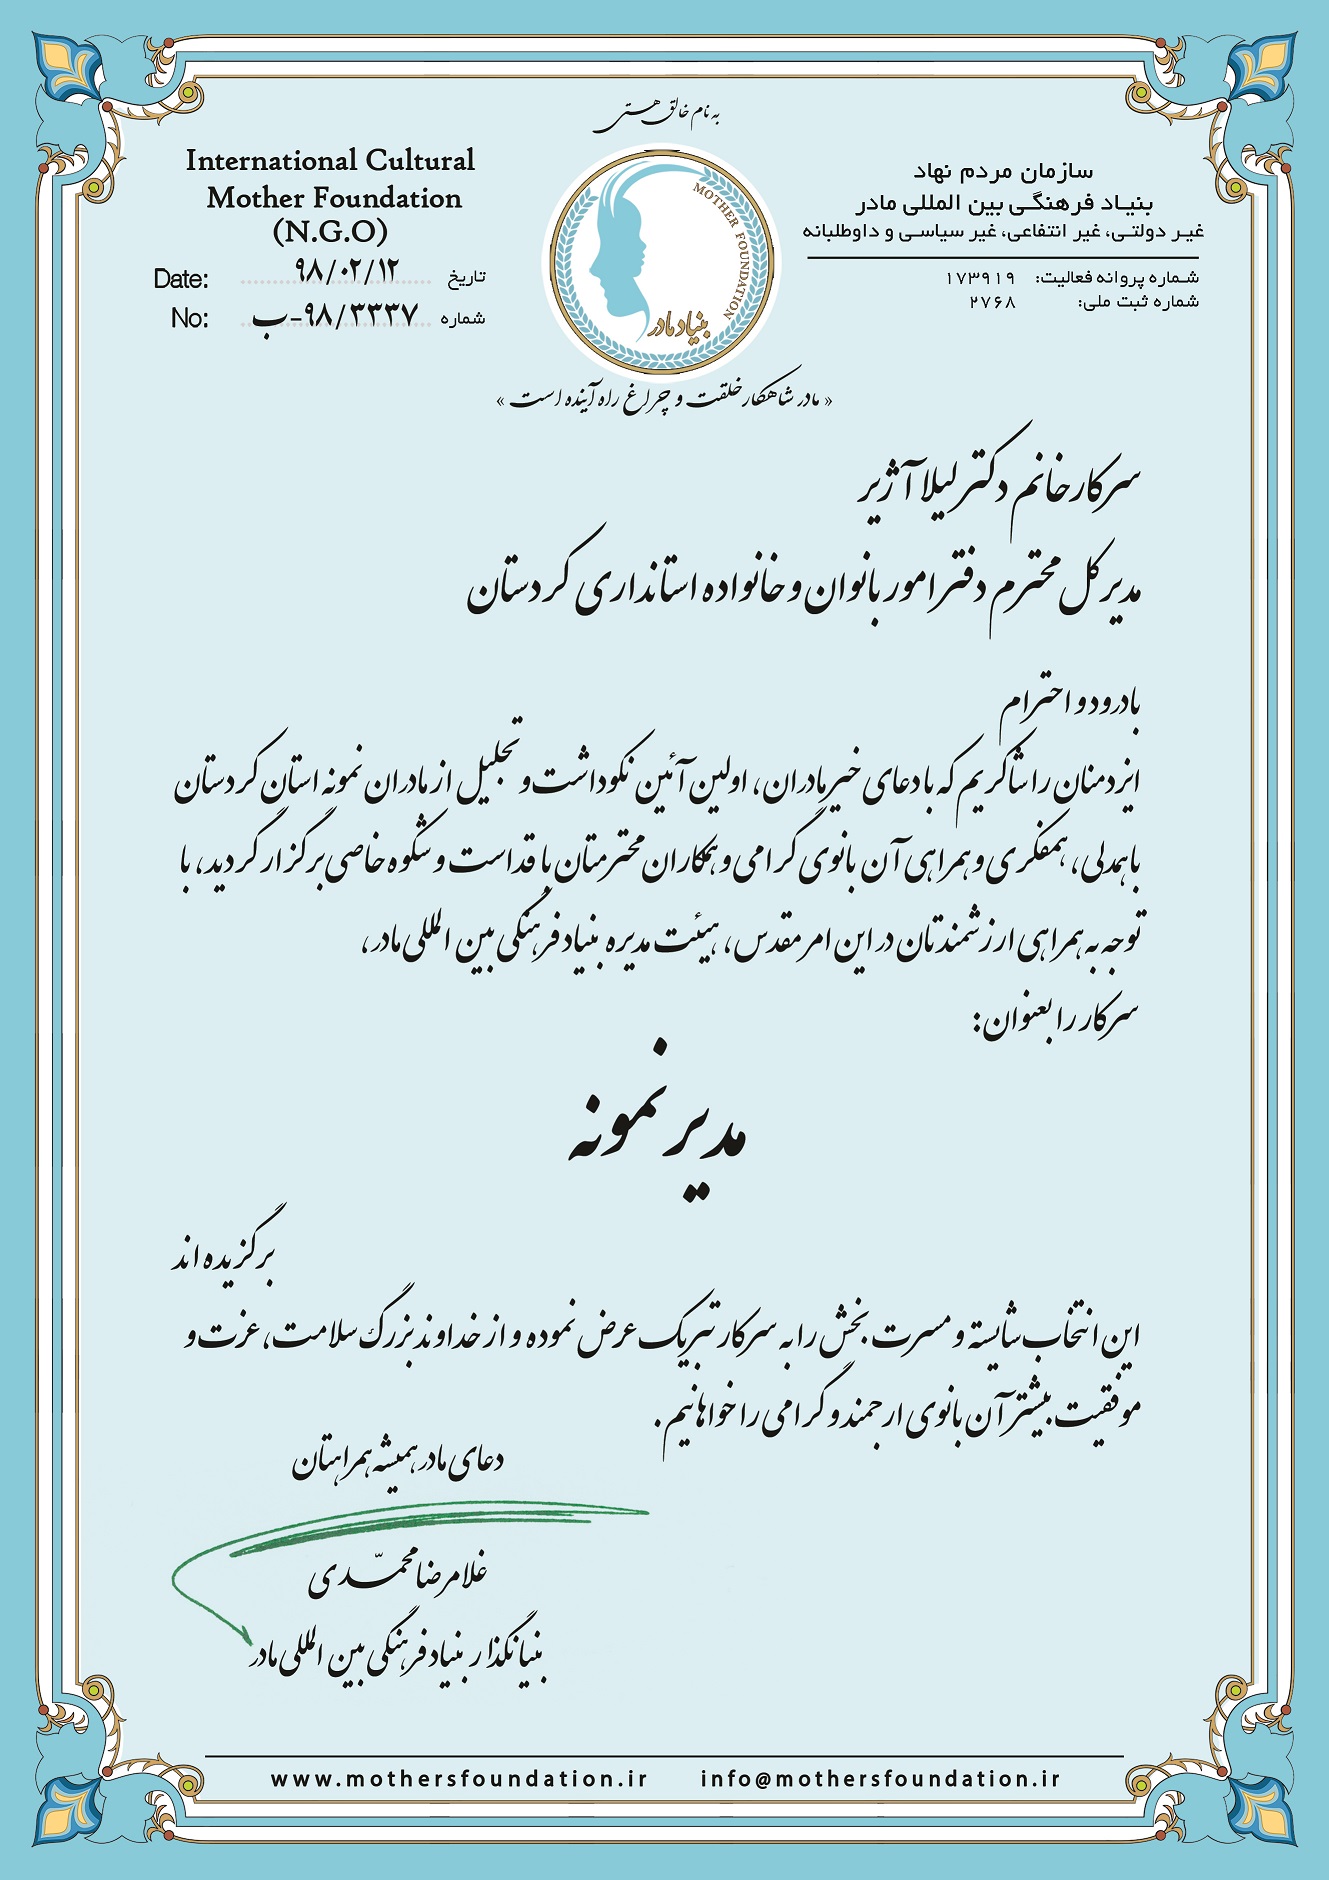 به نام خالق هستی
International Cultural
Mother Foundation
(N.G.O)
Date: ۹۸/۰۲/۱۲ تاریخ
No: ۹۸/۳۳۳۷-ب شماره
MOTHER FOUNDATION
بنیاد مادر
سازمان مردم نهاد
بنیاد فرهنگی بین المللی مادر
غیر دولتی، غیر انتفاعی، غیر سیاسی و داوطلبانه
شماره پروانه فعالیت: ۱۷۳۹۱۹
شماره ثبت ملی: ۲۷۶۸
« مادر شاهکار خلقت و چراغ راه آینده است »
سرکار خانم دکتر لیلا آژیر
مدیر کل محترم دفتر امور بانوان و خانواده استانداری کردستان
با درود و احترام
ایزدمنان را شاکریم که با دعای خیر مادران، اولین آئین نکوداشت و تجلیل از مادران نمونه استان کردستان
با همدلی، همفکری و همراهی آن بانوی گرامی و همکاران محترمتان با قداست و شکوه خاصی برگزار گردید، با
توجه به همراهی ارزشمندتان در این امر مقدس، هیئت مدیره بنیاد فرهنگی بین المللی مادر،
سرکار را بعنوان:
مدیر نمونه
برگزیده اند
این انتخاب شایسته و مسرت بخش را به سرکار تبریک عرض نموده و از خداوند بزرگ سلامت، عزت و
موفقیت بیشتر آن بانوی ارجمند و گرامی را خواهانیم.
دعای مادر همیشه همراهتان
غلامرضا محمّدی
بنیانگذار بنیاد فرهنگی بین المللی مادر
www.mothersfoundation.ir info@mothersfoundation.ir